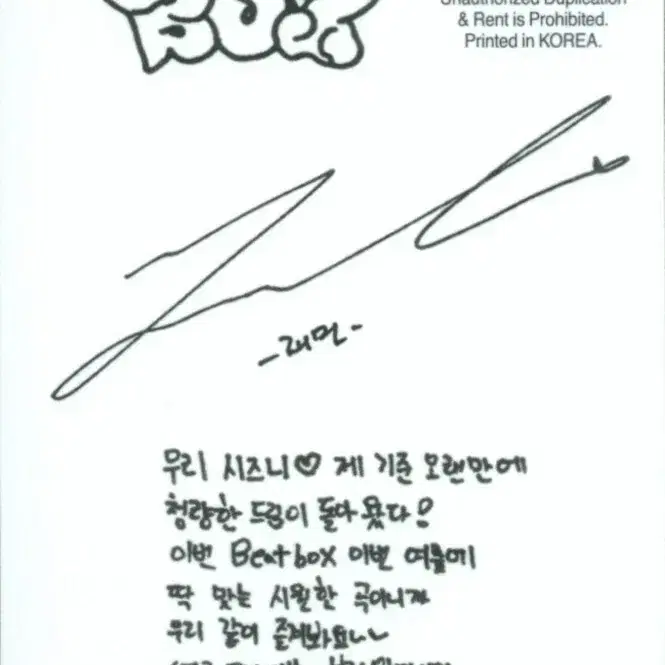 Unauthorized Duplication
& Rent is Prohibited.
Printed in KOREA.
-재민-
우리 시즈니♡ 제 기준 오랜만에
청량한 드림이 돌아왔다!
이번 Beatbox 이번 여름에
딱 맞는 시원한 곡이니까
우리 같이 즐겨봐요~~